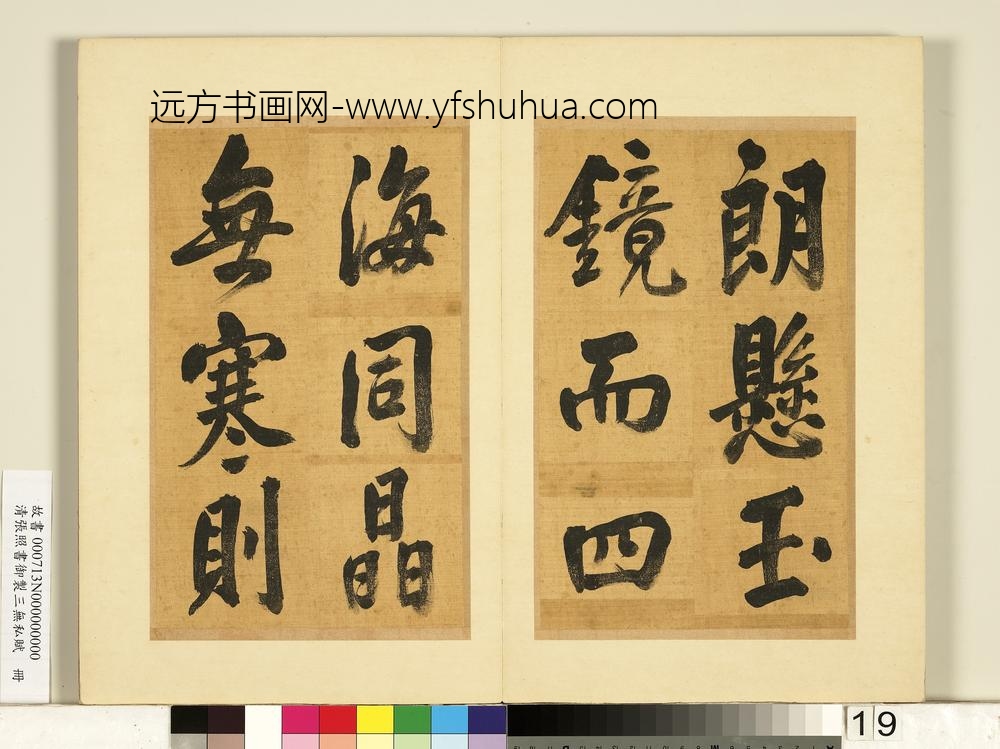 远方书画网-www.yfshuhua.com
朗懸玉
鏡而四
海同晶
無寒則
故書 000713N000000000
清張照書御製三無私賦 冊
19